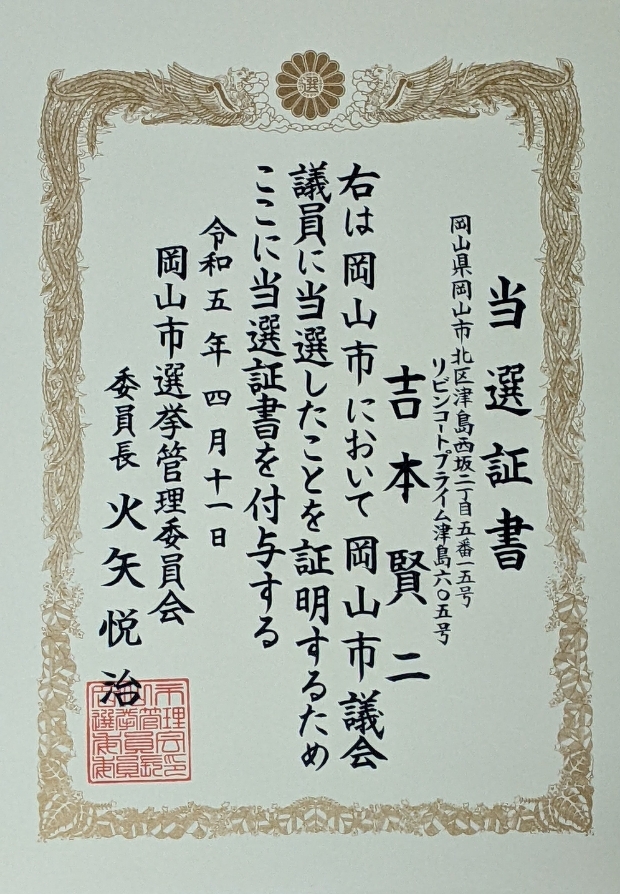 選
当選証書
岡山県岡山市北区津島西坂二丁目五番一五号
リビンコートプライム津島六〇五号
吉本賢二
右は岡山市において岡山市議会
議員に当選したことを証明するため
ここに当選証書を付与する
令和五年四月十一日
岡山市選挙管理委員会
委員長 火矢悦治